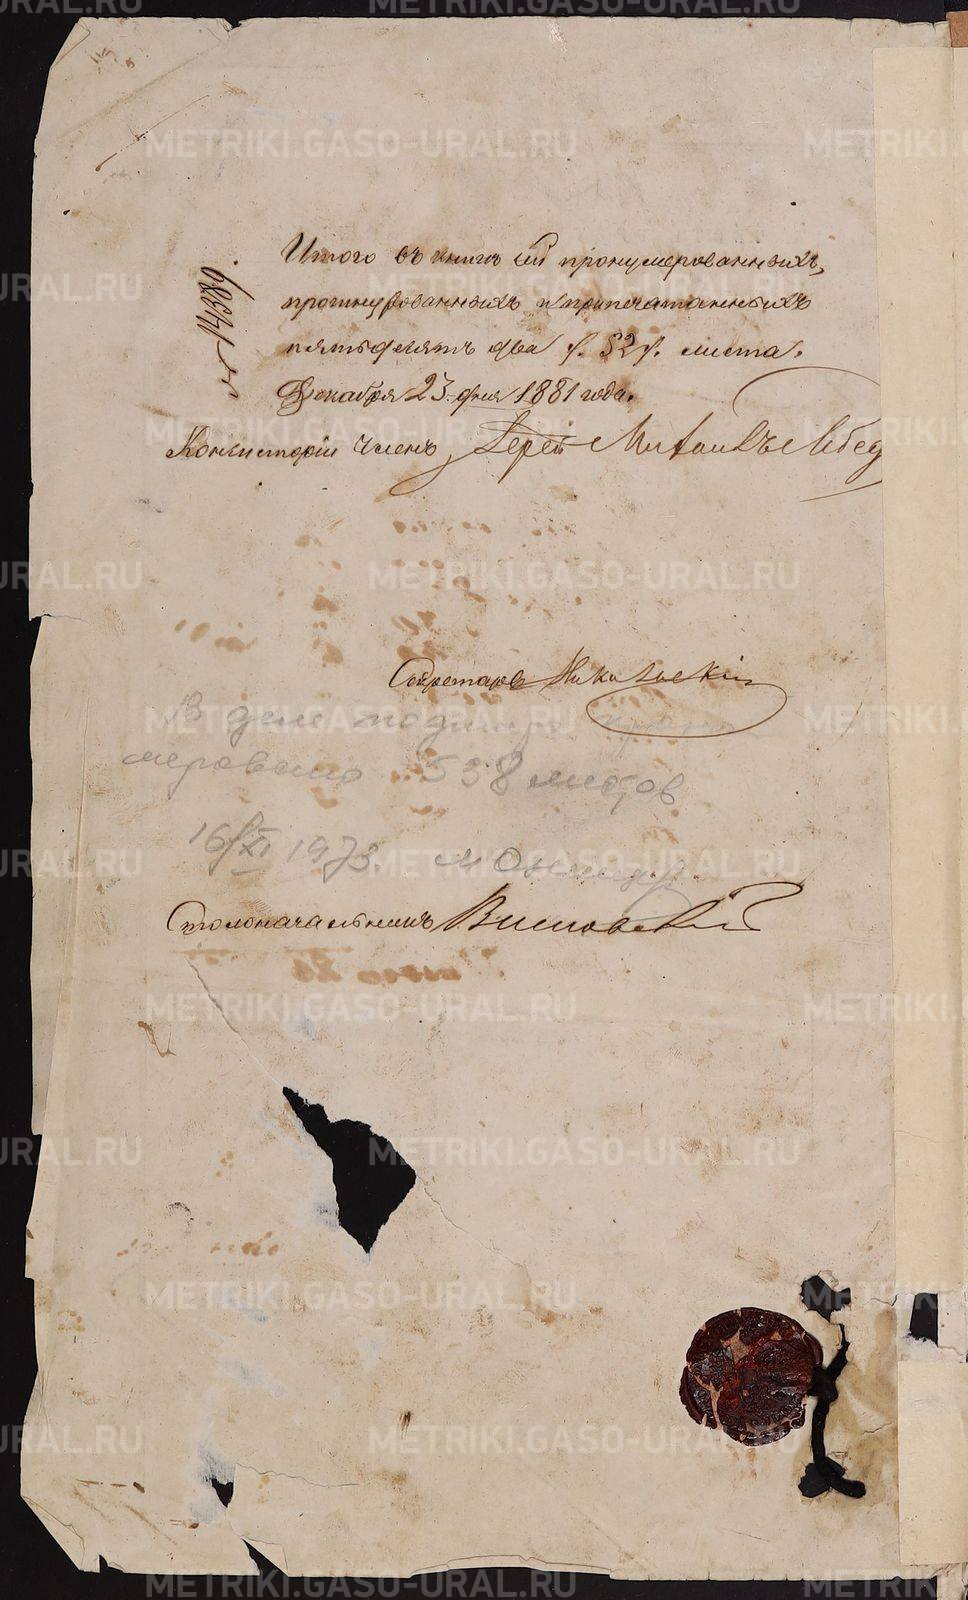 № 14389.
Итого въ книгѣ сей пронумерованныхъ,
прошнурованныхъ и припечатанныхъ
пятьдесятъ два /. 52 /. листа.
Декабря 23 дня 1881 года.
Консисторіи Членъ, Іерей
Секретарь Никольскій
В деле подшито и прону
меровано 558 листов
16/XI 1973.
Столоначальникъ
METRIKI.GASO-URAL.RU